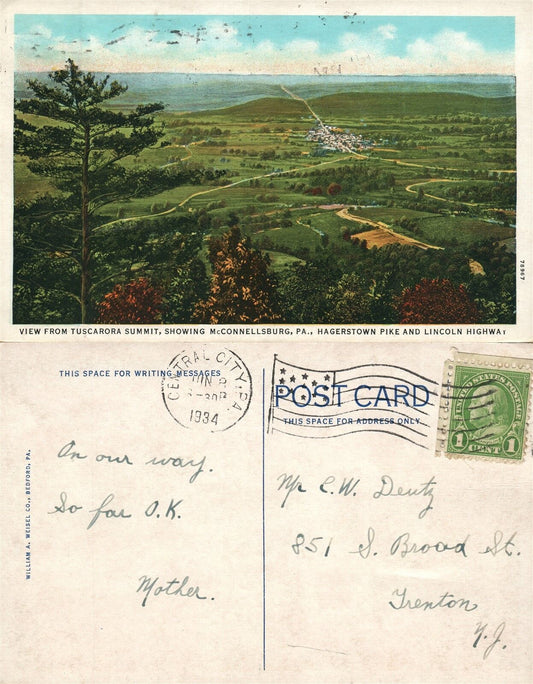 VIEW FROM TUSCARORA SUMMIT, SHOWING McCONNELLSBURG, PA., HAGERSTOWN PIKE AND LINCOLN HIGHWAY
78967
THIS SPACE FOR WRITING MESSAGES
CENTRAL CITY, PA.
JUN 8
1934
POST CARD
THIS SPACE FOR ADDRESS ONLY
UNITED STATES POSTAGE
1 CENT 1
WILLIAM A. WEISEL CO., BEDFORD, PA.
On our way.
So far O.K.
Mother.
Mr C. W. Deutz
851 S. Broad St.
Trenton
N.J.